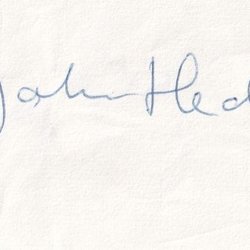 John Hed